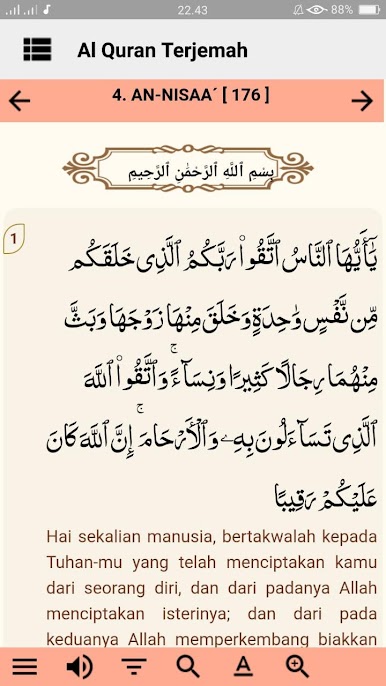 22.43
88%
Al Quran Terjemah
4. AN-NISAA´ [ 176 ]
بِسْمِ ٱللَّهِ ٱلرَّحْمَٰنِ ٱلرَّحِيمِ
1
يَٰٓأَيُّهَا ٱلنَّاسُ ٱتَّقُوا۟ رَبَّكُمُ ٱلَّذِى خَلَقَكُم
مِّن نَّفْسٍ وَٰحِدَةٍ وَخَلَقَ مِنْهَا زَوْجَهَا وَبَثَّ
مِنْهُمَا رِجَالًا كَثِيرًا وَنِسَآءً ۚ وَٱتَّقُوا۟ ٱللَّهَ
ٱلَّذِى تَسَآءَلُونَ بِهِۦ وَٱلْأَرْحَامَ ۚ إِنَّ ٱللَّهَ كَانَ
عَلَيْكُمْ رَقِيبًا
Hai sekalian manusia, bertakwalah kepada
Tuhan-mu yang telah menciptakan kamu
dari seorang diri, dan dari padanya Allah
menciptakan isterinya; dan dari pada
keduanya Allah memperkembang biakkan
A